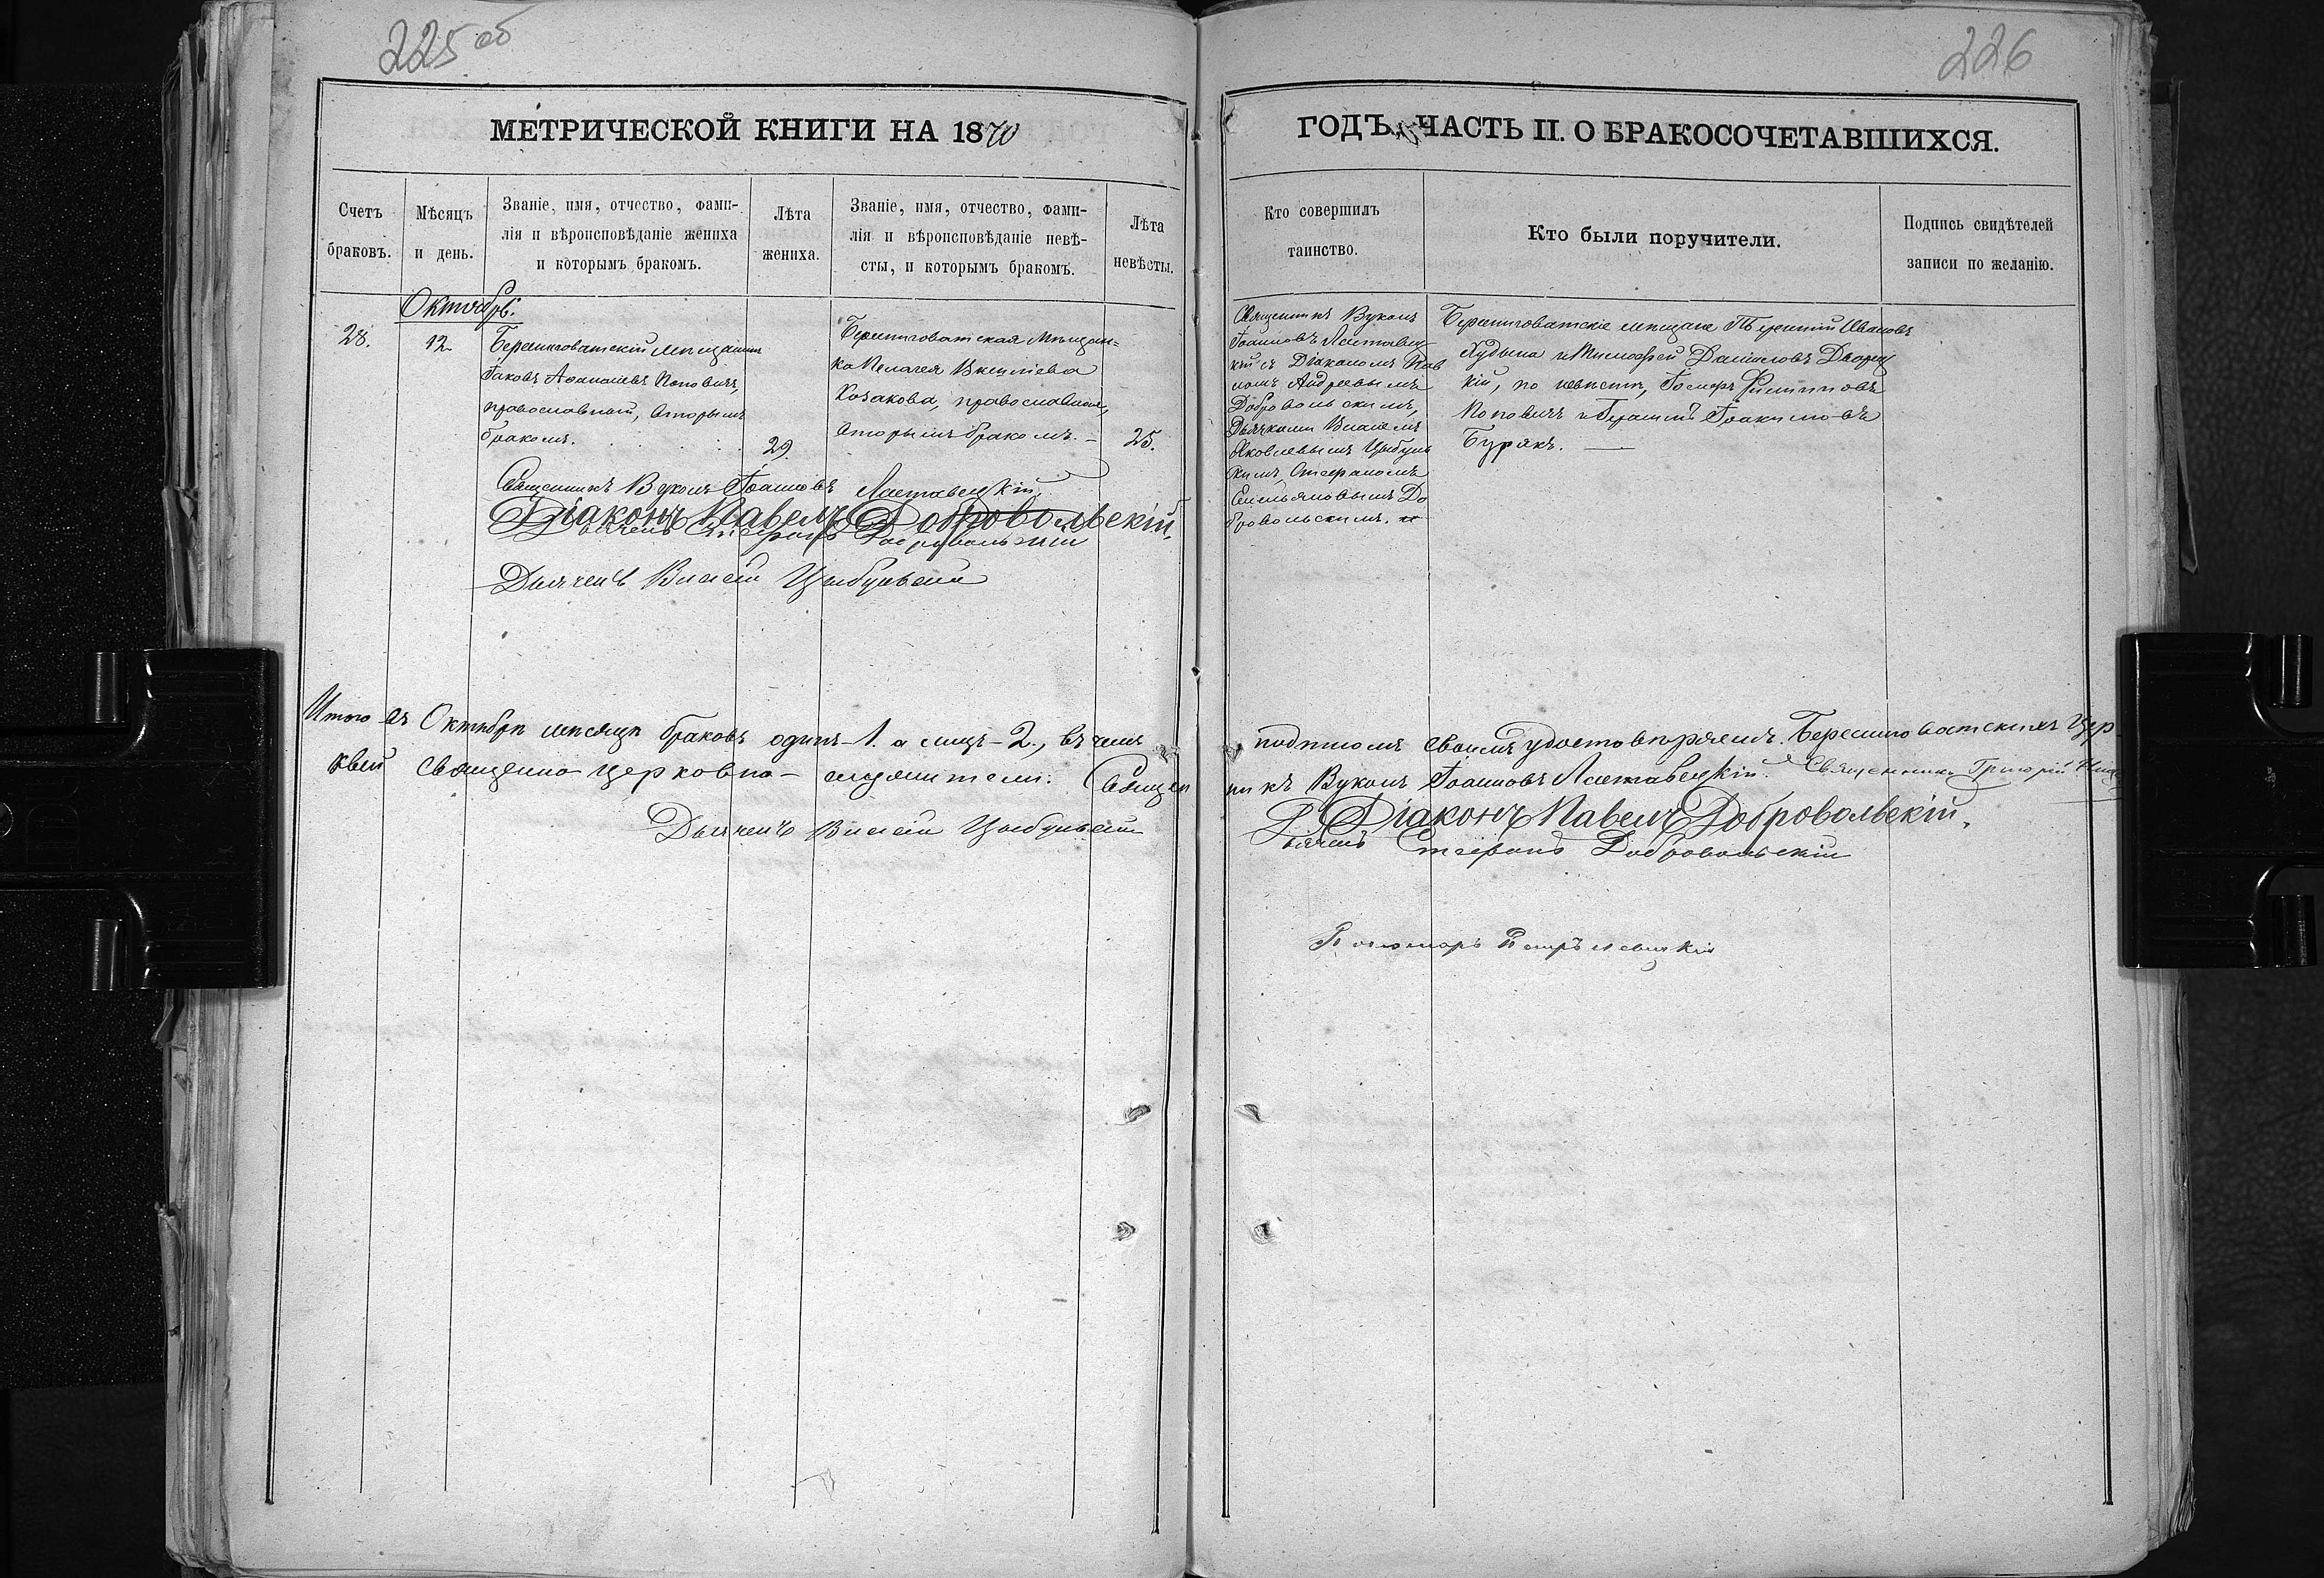 225 об
226
МЕТРИЧЕСКОЙ КНИГИ НА 1870
ГОДЪ, ЧАСТЬ II. О БРАКОСОЧЕТАВШИХСЯ.
Счетъ
браковъ.
Мѣсяцъ
и день.
Званіе, имя, отчество, фами-
лія и вѣроисповѣданіе жениха
и которымъ бракомъ.
Лѣта
жениха.
Званіе, имя, отчество, фами-
лія и вѣроисповѣданіе невѣ-
сты, и которымъ бракомъ.
Лѣта
невѣсты.
Кто совершилъ
таинство.
Кто были поручители.
Подпись свидѣтелей
записи по желанію.
Октябрь.
28.
12.
Береснеговатскій мѣщанинъ
Іаковъ Аѳанасіевъ Поповичъ,
православный, вторымъ
бракомъ.
29.
Береснеговатская мѣщан=
ка Пелагея
Козакова, православная,
вторымъ бракомъ. –
25.
Священникъ Вуколъ
Іоанновъ Ластавец
кій съ Діакономъ Пав
ломъ Андреевымъ
Добровольскимъ,
Дьячками Власіемъ
Яковлевымъ Цыбуль
скимъ, Стефаномъ
Емельяновымъ До
бровольскимъ.
Береснеговатскіе мѣщане Терентій Ивановъ
Худына и Тимофей Даниловъ Дворец
кій, по невѣстѣ, Іосифъ Филипповъ
Поповичъ и Герасимъ Іоакимовъ
Бурякъ. —
Священникъ Вуколъ Іоанновъ Ластавецкій.
Діаконъ Павелъ Добровольскій.
Дьячекъ Стефанъ Добровольскій
Дьячекъ Власій Цыбульскій
Итого въ Октябрѣ мѣсяцѣ браковъ одинъ – 1. а лицъ – 2., въ чемъ
подписомъ своимъ удостовѣряемъ. Береснеговатскихъ Цер-
квей священно церковно – служители: Священ
никъ Вуколъ Іоанновъ Ластавецкій. Священникъ Григорій
Діаконъ Павелъ Добровольскій.
Дьячекъ Власій Цыбульскій
Дьячекъ Стефанъ Добровольскій
Пономарь Петръ Левицкій